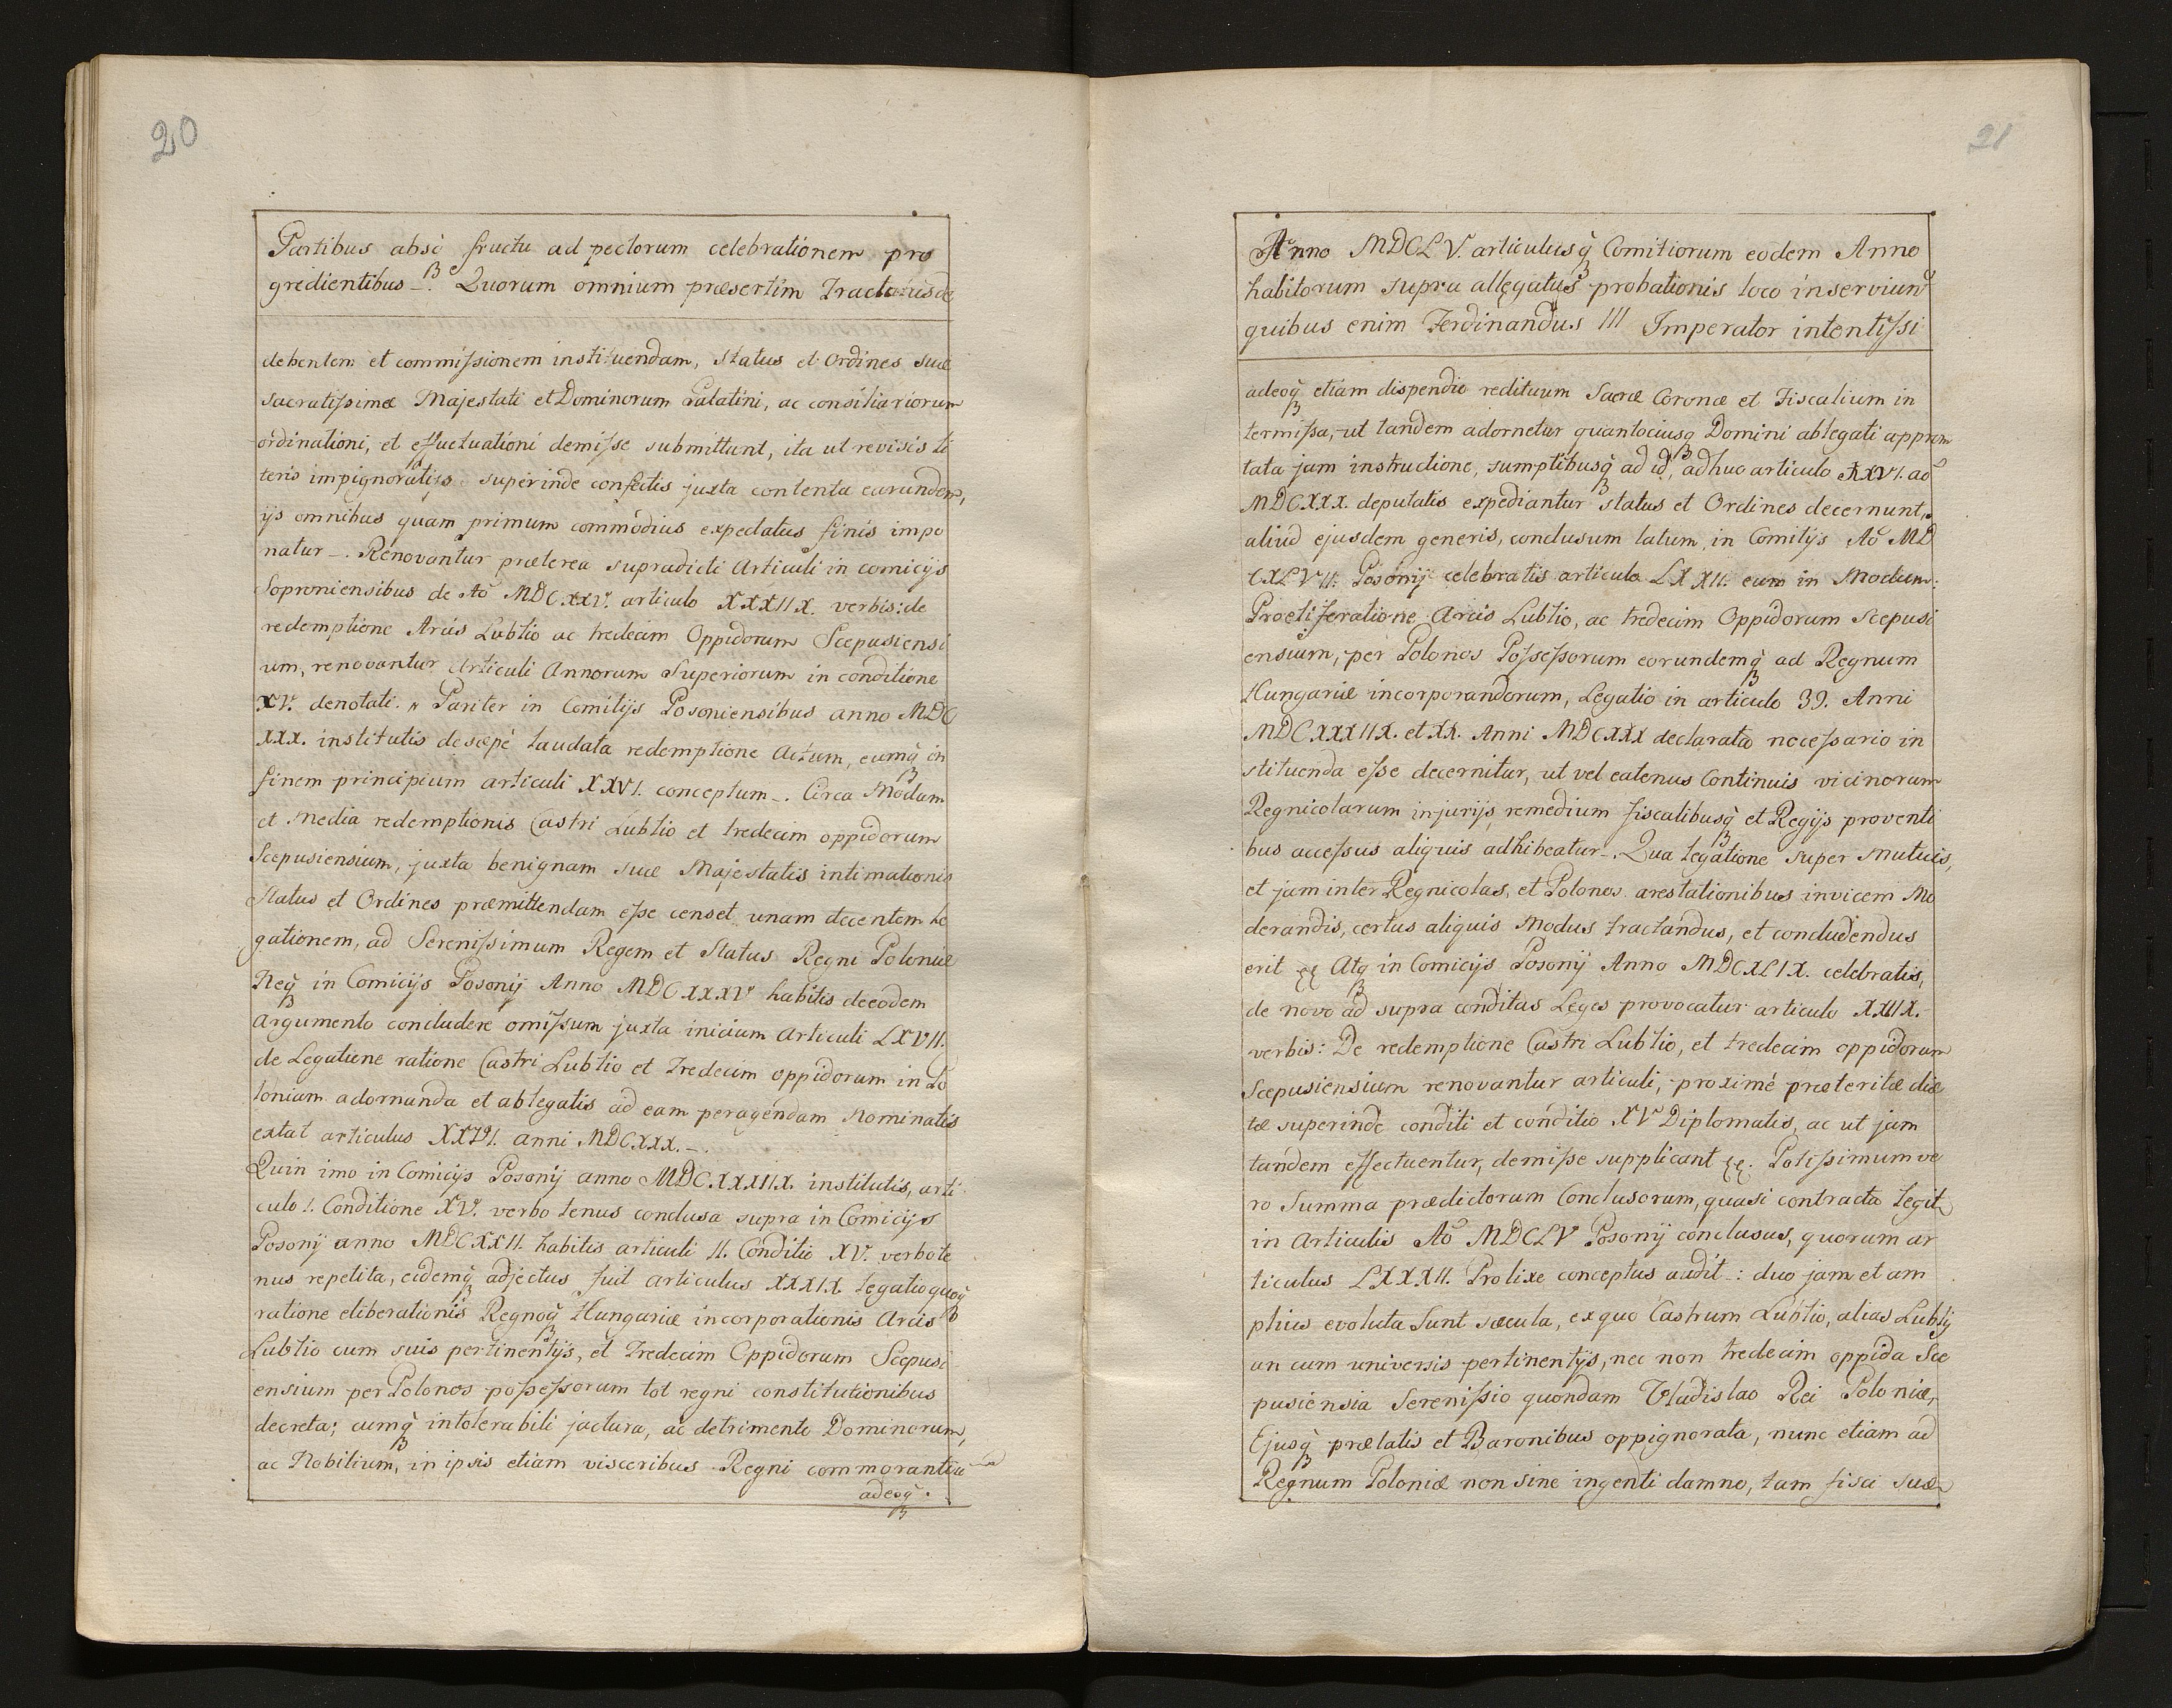 20
Partibus absq́ fructu ad pectorum celebrationem pro
gredientibus –. Quorum omnium præsertim Tractatus de
debentem et commiſsionem instituendam, status et Ordines suæ
sacratiſsimæ Majestati et Dominorum Palatini, ac consiliariorum
ordinationi, et effectuationi demiſse submittunt, ita ut revisis li
teris impignoratijs superinde confectis juxta contenta earundem,
ijs omnibus quam primum commodius expectatus finis impo
natur –. Renovantur præterea supradicti Articuli in comicijs
Soproniensibus de Ao MDCXXV. articulo XXXIIX. verbis: de
redemptione Arcis Lublio ac tredecim Oppidorum Scepusiensi
um, renovantur Articuli Annorum Superiorum in conditione
XV. denotati. Pariter in Comitijs Posoniensibus anno MDC
XXX. institutis de sæpè laudata redemptione actum, eumq́ in
finem principium articuli XXVI. conceptum –. Circa Modum
et media redemptionis Castri Lublio et tredecim oppidorum
Scepusiensium, juxta benignam suæ Majestatis intimationis
status et Ordines præmittendam eſse censet unam decentem le
gationem, ad Sereniſsimum Regem et Status Regni Poloniæ
Neq́ in Comicijs Posonij Anno MDCXXXV habitis de eodem
argumento concludere omiſsum juxta inicium Articuli LXVII.
de Legatiene ratione Castri Lublio et Tredecim oppidorum in Po
loniam adornanda et ablegatis ad eam peragendam nominatis
extat articulus XXVI. anni MDCXXX. –.
Quin imo in Comicijs Posonij anno MDCXXXIIX. institutis, arti
culo I. Conditione XV. verbo tenus conclusa supra in Comicijs
Posonij anno MDCXXII. habitis articuli II. Conditio XV. verbote
nus repetita, eidemq́ adjectus fuit articulus XXXIX legatio quoq́
ratione eliberationis Regnoq́ Hungariæ incorporationis Arcis
Lublio cum suis pertinentijs, et Tredecim Oppidorum Scepusi
ensium per Polonos poſseſsorum tot regni constitutionibus
decreta; cumq́ intolerabili jactura, ac detrimento Dominorum,
ac Nobilium, in ipsis etiam visceribus Regni commorantiu
adeoq́.
21
Anno MDCLV. articulusq́ Comitiorum eodem Anno
habitorum supra allegatus probationis loco inserviunt
quibus enim Ferdinandus III Imperator intentiſsi
adeoq́ etiam dispendio redituum Sacræ Coronæ et Fiscalium in
termiſsa, ut tandem adornetur quantociusq Domini ablegati approm
tata jam instructione, sumptibusq́ ad id, adhuc articulo XXVI. ao
MDCXXX. deputatis expediantur status et Ordines decernunt.
aliud ejusdem generis, conclusum latum, in Comitijs Ao MD
CXLVII. Posonij celebratis articulo LXXII. eum in Modum:
Pro eliberatione Arcis Lublio, ac tredecim Oppidorum Scepusi
ensium, per Polonos Poſseſsorum eorundemq́ ad Regnum
Hungariæ incorporandorum, Legatio in articulo 39. Anni
MDCXXXIIX. et XX. Anni MDCXXX declarata neceſsario in
stituenda eſse decernitur, ut vel eatenus Continuis vicinorum
Regnicolarum injurijs remedium fiscalibusq́ et Regijs proventi
bus acceſsus aliquis adhibeatur –. Qua legatione super mutuis,
et jam inter Regnicolas, et Polonos arestationibus invicem mo
derandis, certus aliquis modus tractandus, et concludendus
erit Atq in Comicijs Posonij Anno MDCXLIX. celebratis,
de novo ad supra conditas Leges provocatur articulo XXIIX.
verbis: De redemptione Castri Lublio, et tredecim oppidorum
Scepusiensium renovantur articuli, proximé præteritæ diæ
tæ superinde conditi et conditio XV Diplomatis, ac ut jam
tandem effectuentur, demiſse supplicant. Potiſsimum ve
ro Summa prædictorum Conclusorum, quasi contracta legit
in Articulis Ao MDCLV Posonij conclusus, quorum ar
ticulus LXXXII. Prolixe conceptus audit –: duo jam et am
plius evoluta Sunt sæcula, ex quo Castrum Lublio, alias Lubly
un cum universis pertinentijs, nec non tredecim oppida Sce
pusiensia Sereniſsio quondam Vladislao Rei Poloniæ,
Ejusq́ prælatis et Baronibus oppignorata, nunc etiam ad
Regnum Poloniæ non sine ingenti damno, tam fisci suæ